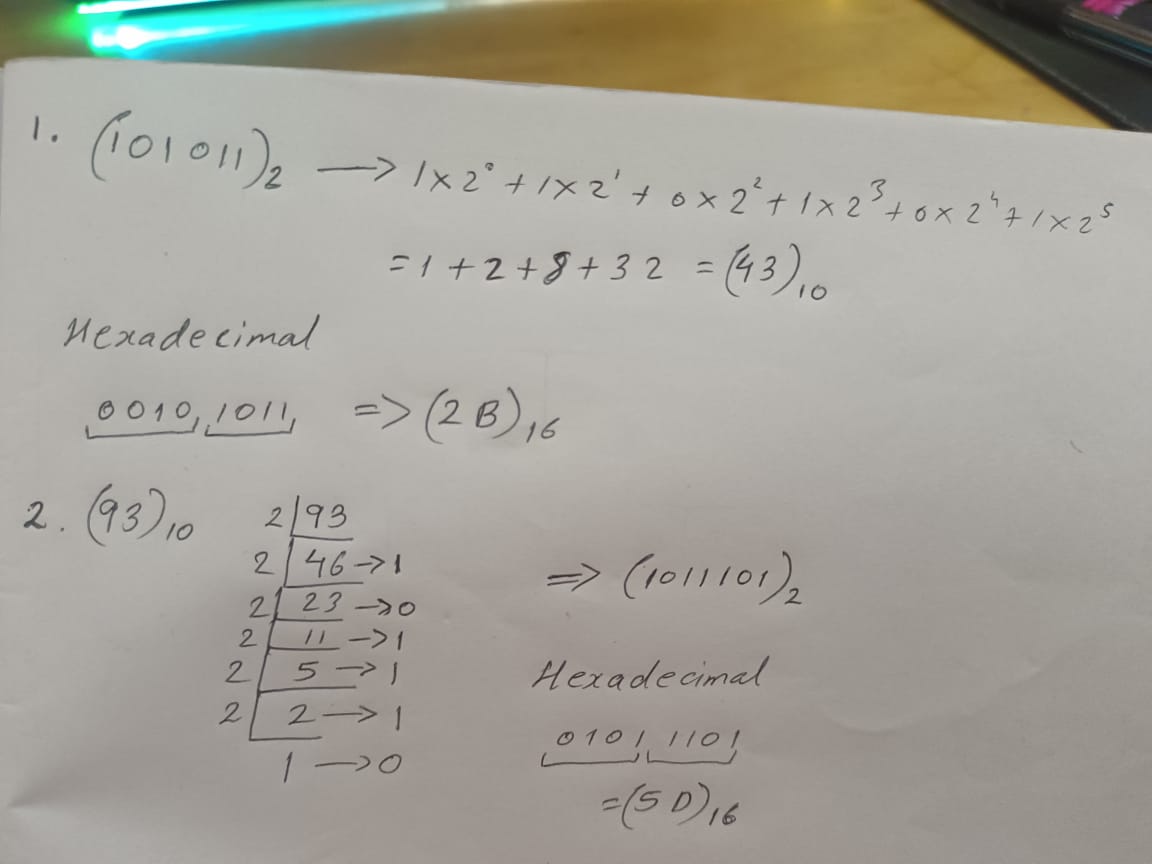 1. (101011)₂ → 1×2⁰ + 1×2¹ + 0×2² + 1×2³ + 0×2⁴ + 1×2⁵
= 1 + 2 + 8 + 32 = (43)₁₀
Hexadecimal
0010, 1011, => (2B)₁₆
2. (93)₁₀
2|93
2|46 → 1
2|23 → 0
2|11 → 1
2|5 → 1
2|2 → 1
1 → 0
=> (1011101)₂
Hexadecimal
0101, 1101
= (5D)₁₆